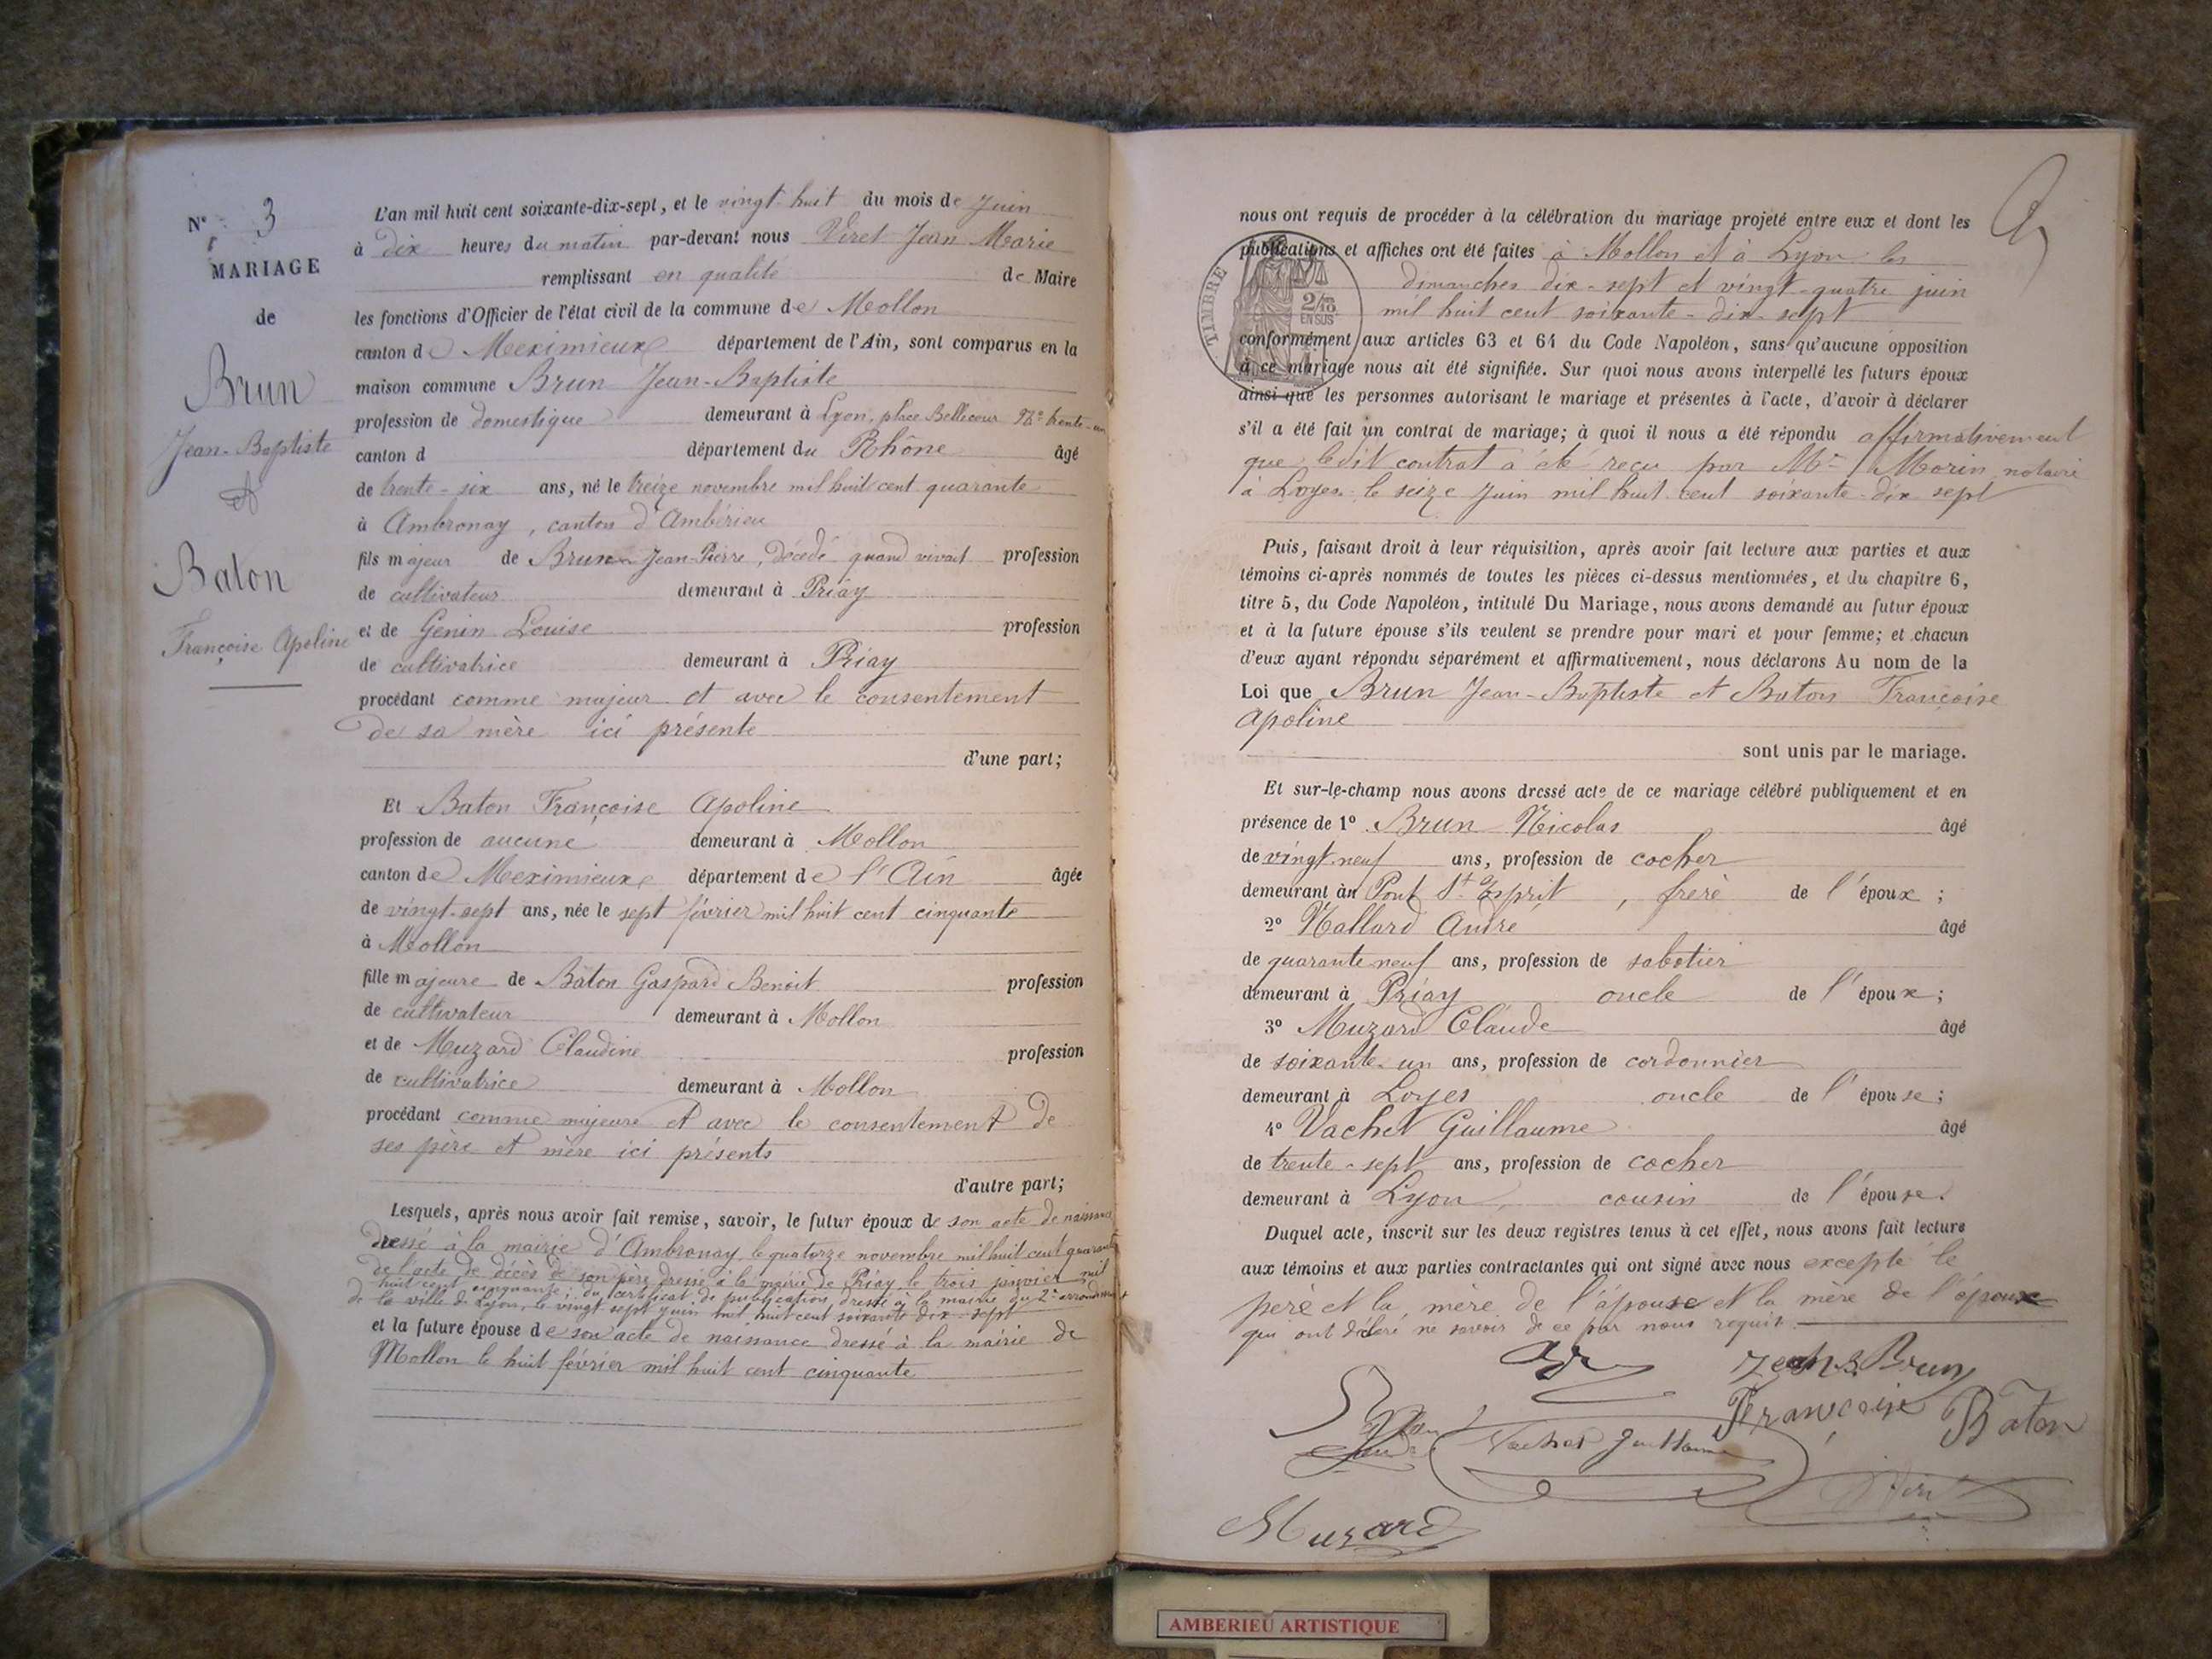 N° 3
MARIAGE
de
Brun
Jean-Baptiste
et
Baton
Françoise Apoline
L'an mil huit cent soixante-dix-sept, et le vingt-huit du mois de Juin
à dix heures du matin par-devant nous Viret Jean Marie
remplissant en qualité de Maire
les fonctions d'Officier de l'état civil de la commune de Mollon
canton de Meximieux département de l'Ain, sont comparus en la
maison commune Brun Jean-Baptiste
profession de domestique demeurant à Lyon, place Bellecour N° trente-un
canton d département du Rhône âgé
de trente-six ans, né le treize novembre mil huit cent quarante
à Ambronay, canton d'Ambérieu
fils majeur de Brun Jean-Pierre, décédé quand vivait profession
de cultivateur demeurant à Priay
et de Genin Louise profession
de cultivatrice demeurant à Priay
procédant comme majeur et avec le consentement
de sa mère ici présente
d'une part;
Et Baton Françoise Apoline
profession de aucune demeurant à Mollon
canton de Meximieux département de l'Ain âgée
de vingt-sept ans, née le sept février mil huit cent cinquante
à Mollon
fille majeure de Bâton Gaspard Benoit profession
de cultivateur demeurant à Mollon
et de Muzard Claudine profession
de cultivatrice demeurant à Mollon
procédant comme majeure et avec le consentement de
ses père et mère ici présents
d'autre part;
Lesquels, après nous avoir fait remise, savoir, le futur époux de son acte de naissance
dressé à la mairie d'Ambronay le quatorze novembre mil huit cent quarante
de l'acte de décès de son père dressé à la mairie de Priay le trois janvier mil
huit cent cinquante; du certificat de publication dressé à la mairie du 2e arrondissement
de la ville de Lyon, le vingt sept juin mil huit cent soixante dix-sept
et la future épouse de son acte de naissance dressé à la mairie de
Mollon le huit février mil huit cent cinquante
nous ont requis de procéder à la célébration du mariage projeté entre eux et dont les
publications et affiches ont été faites à Mollon et à Lyon les
dimanches dix-sept et vingt-quatre juin
mil huit cent soixante-dix-sept
TIMBRE
2/10
EN SUS
conformément aux articles 63 et 64 du Code Napoléon, sans qu'aucune opposition
à ce mariage nous ait été signifiée. Sur quoi nous avons interpellé les futurs époux
ainsi que les personnes autorisant le mariage et présentes à l'acte, d'avoir à déclarer
s'il a été fait un contrat de mariage; à quoi il nous a été répondu affirmativement
que ledit contrat a été reçu par Me Morin notaire
à Loyes le seize Juin mil huit cent soixante-dix sept
Puis, faisant droit à leur réquisition, après avoir fait lecture aux parties et aux
témoins ci-après nommés de toutes les pièces ci-dessus mentionnées, et du chapitre 6,
titre 5, du Code Napoléon, intitulé Du Mariage, nous avons demandé au futur époux
et à la future épouse s'ils veulent se prendre pour mari et pour femme; et chacun
d'eux ayant répondu séparément et affirmativement, nous déclarons Au nom de la
Loi que Brun Jean-Baptiste et Baton Françoise
Apoline
sont unis par le mariage.
Et sur-le-champ nous avons dressé acte de ce mariage célébré publiquement et en
présence de 1° Brun Nicolas âgé
de vingt-neuf ans, profession de cocher
demeurant au Pont St Esprit, frère de l'époux;
2° Mallard André âgé
de quarante neuf ans, profession de sabotier
demeurant à Priay oncle de l'époux;
3° Muzard Claude âgé
de soixante-un ans, profession de cordonnier
demeurant à Loyes oncle de l'épouse;
4° Vachet Guillaume âgé
de trente-sept ans, profession de cocher
demeurant à Lyon, cousin de l'épouse.
Duquel acte, inscrit sur les deux registres tenus à cet effet, nous avons fait lecture
aux témoins et aux parties contractantes qui ont signé avec nous excepté le
père et la mère de l'épouse et la mère de l'époux
qui ont déclaré ne savoir de ce par nous requis.
Jean B Brun
Françoise Baton
Vachet Guillaume
Viret
Muzard
AMBERIEU ARTISTIQUE